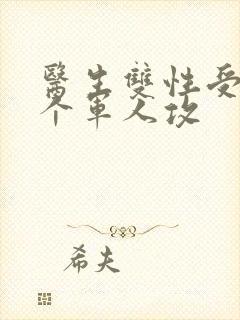 醫生雙性受
个軍人攻
希夫